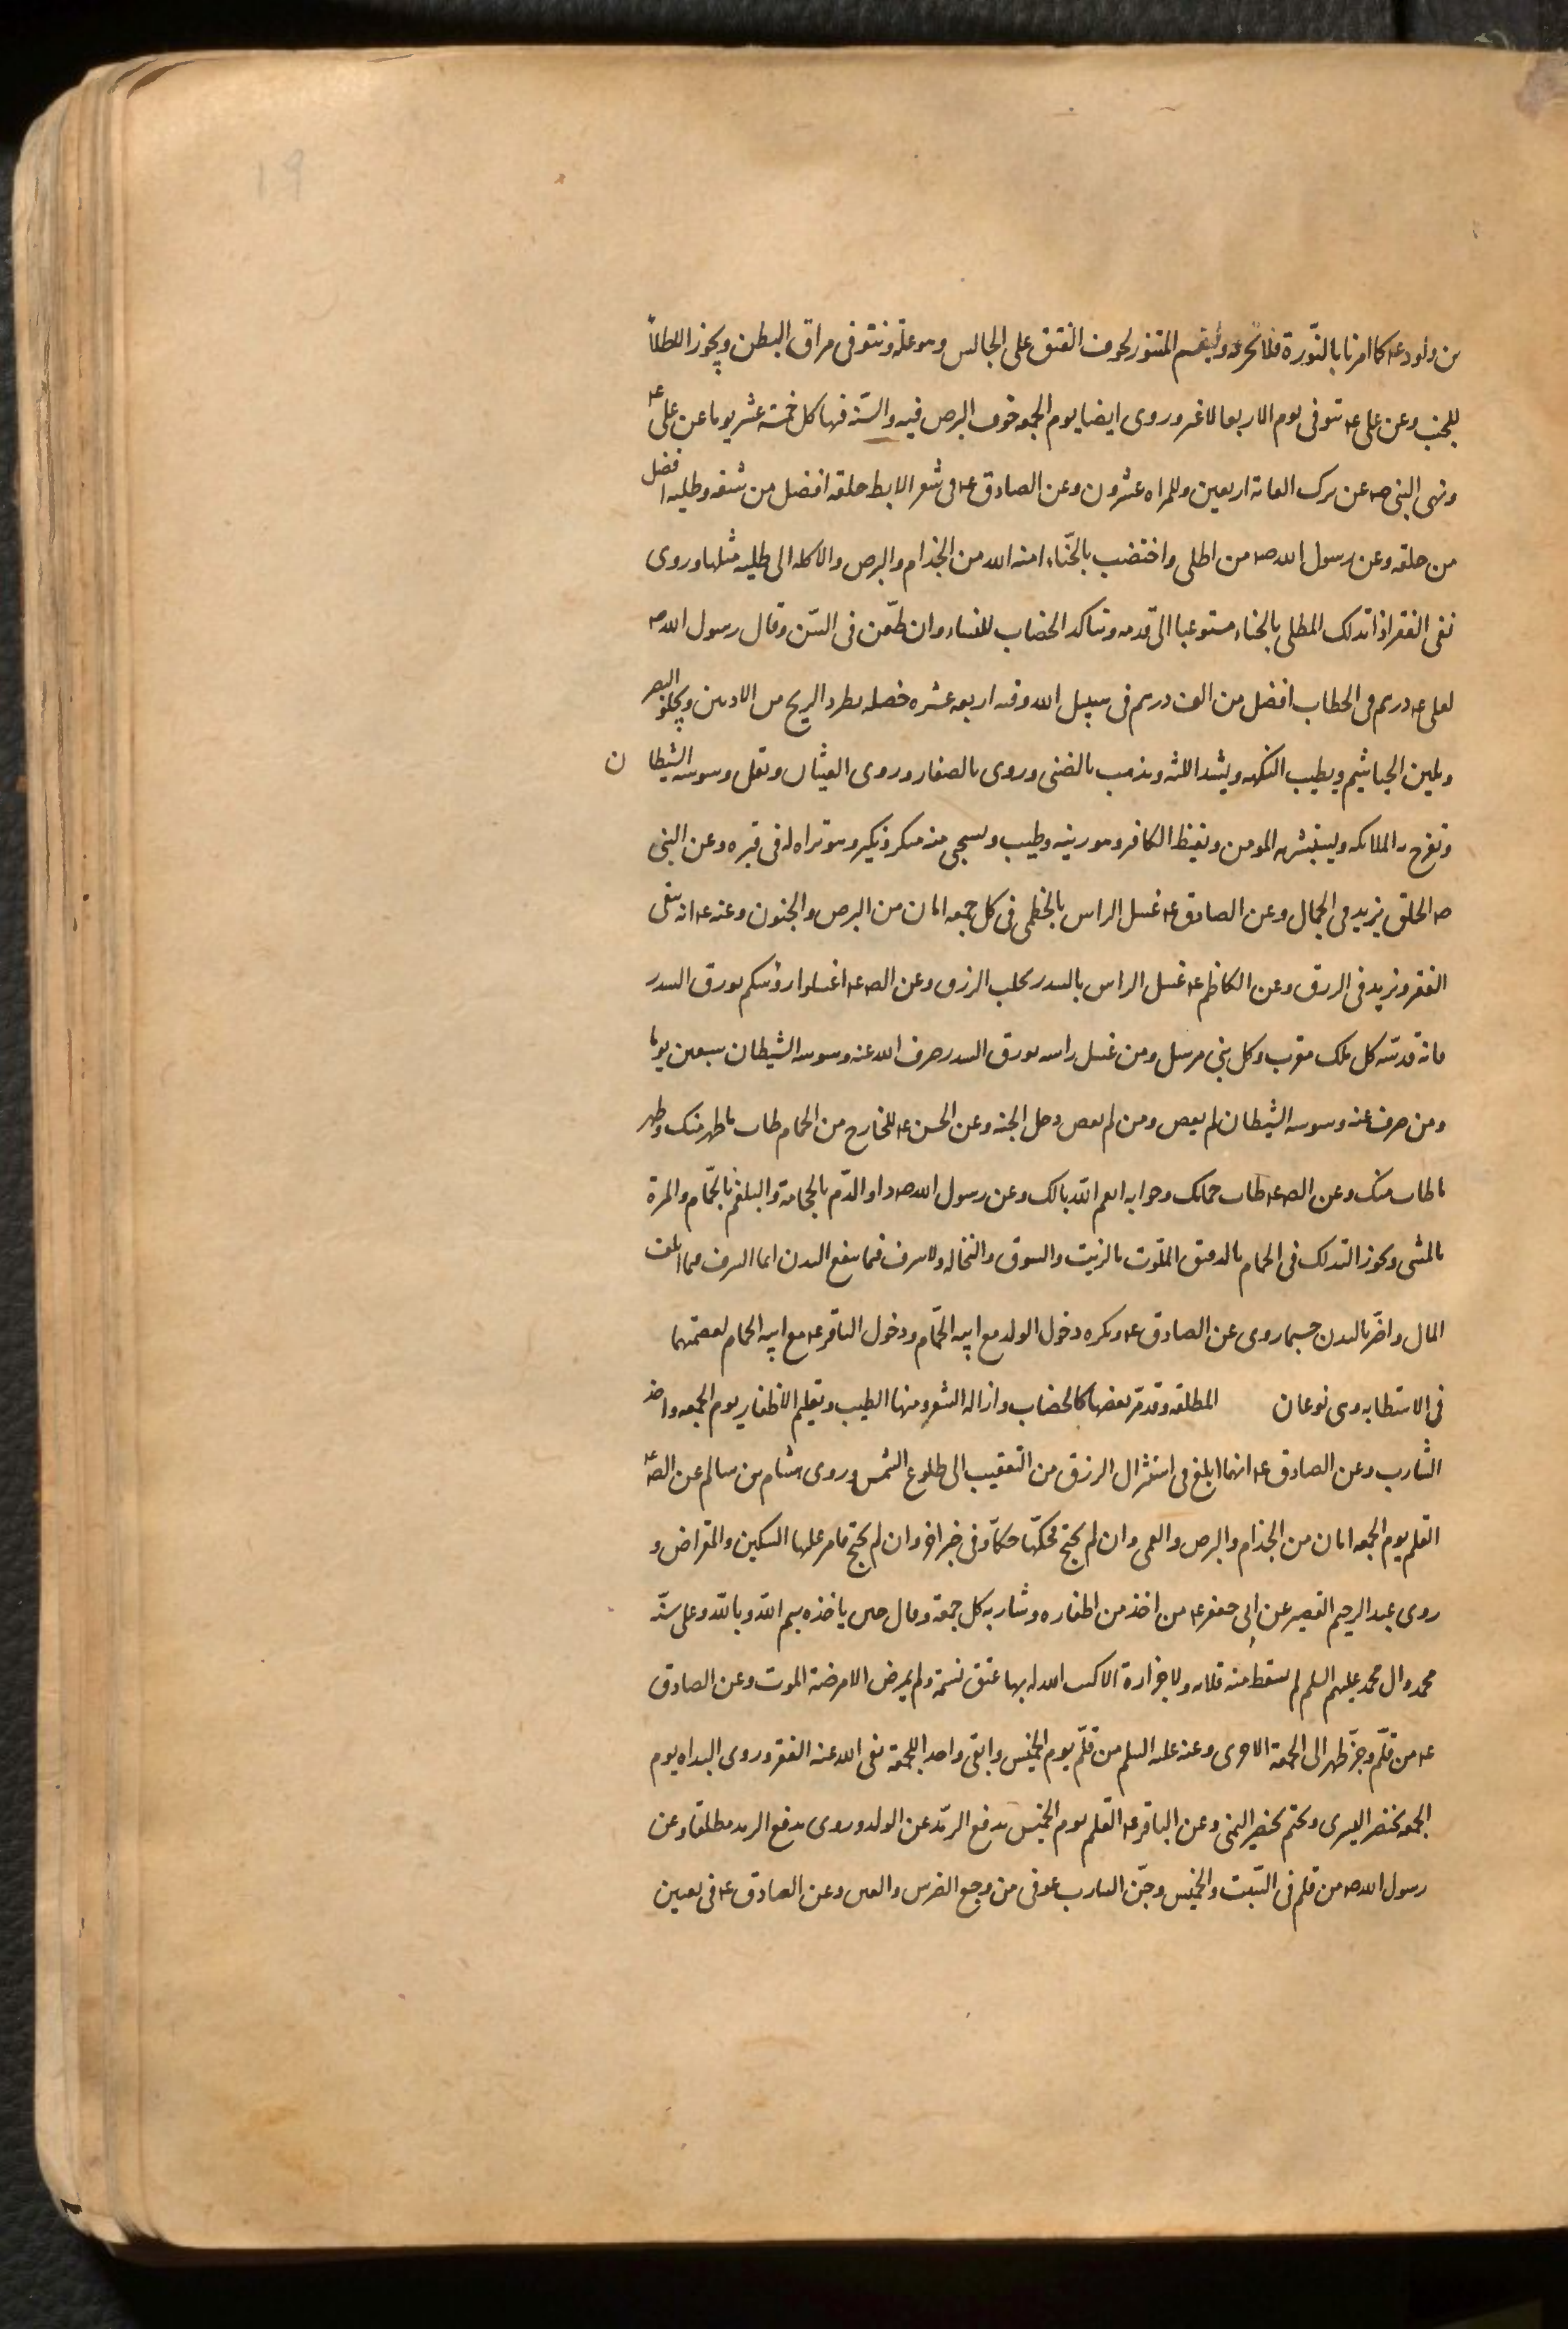 بن داود عه كما امرنا بالنّورة فلا تحرقه وليقم المتنور لخوف الفتق على الجالس وهو علة ونتوقى مراق البطن ويجوز الاطلاء
للجنب وعن على عه تتوقى يوم الاربعا لا غير وروى ايضا يوم الجمعه خوف البرص فيه والسنه فيها كل خمسة عشر يوما عن على عه
ونهى النبى صه عن ترك العانة اربعين وللمراه عشرون وعن الصادق عه فى شعر الابط حلقه افضل من نتفه وطليه افضل
من حلقه وعن رسول الله صه من اطلى واختضب بالحنّاء امنه الله من الجذام والبرص والاكله الى طليه مثلها وروى
نفى الفقر اذا تدلك المطلى بالحناء مستوعبا الى قدمه ويتاكد الخضاب للنساء وان طعّن فى السّن وقال رسول الله صه
لعلى عه درهم فى الخطاب افضل من الف درهم فى سبيل الله وفيه اربعه عشره خصله يطرد الريح من الاذنين ويجلو البصر
ويلين الخياشيم ويطيب النكهه ويشد اللثه ويذهب بالضنى وروى بالصفار وروى الغيثان ويقل وسوسه الشيطان
وتفرح به الملائكه ويستبشر به المومن ويغيظ الكافر وهو زينه وطيب ويستحيى منه منكر ونكير وهو براه له فى قبره وعن النبى
صه الحلق يزيد فى الجمال وعن الصادق عه غسل الراس بالخطمى فى كل جمعه امان من البرص والجنون وعنه عه انه ينفى
الفقر ويزيد فى الرزق وعن الكاظم عه غسل الراس بالسدر يجلب الرزق وعن الصه عه اغسلوا رؤسكم بورق السدر
فانه قدسه كل ملك مقرب وكل نبى مرسل ومن غسل راسه بورق السدر صرف الله عنه وسوسه الشيطان سبعين يوما
ومن صرف عنه وسوسه الشيطان لم يعص ومن لم يعص دخل الجنه وعن الحسن عه للخارج من الحمام طاب ما طهر منك وطهر
ما طاب منك وعن الصه عه طاب حمامك وجوابه انعم الله بالك وعن رسول الله صه داو الدّم بالحجامة والبلغم بالحمّام والمرة
بالمشى ويجوز التدلك فى الحمام بالدقيق الملتوت بالزيت والسويق والنخاله ولا سرف فيما ينفع البدن انما السرف فيما اتلف
المال واضرّ بالبدن حسبما روى عن الصادق عه ويكره دخول الولد مع ابيه الحمّام ودخول الباقر عه مع ابيه الحمام لعصمتهما
فى الاستطابه وهى نوعان المطلقه وقد مّر بعضها كالخضاب وازاله الشعر ومنها الطيب وتقليم الاظفار يوم الجمعه واخذ
الشارب وعن الصادق عه انهما ابلغ فى استنزال الرزق من التعقيب الى طلوع الشمس وروى هشام بن سالم عن الصه عه
القلم يوم الجمعه امان من الجذام والبرص والعمى وان لم يحتج فحكّها حكّا وفى خبر اخر وان لم يحتج فامر عليها السكين والمقراض و
روى عبد الرحيم القصير عن ابى جعفر عه من اخذ من اظفاره وشاربه كل جمعة وقال حين ياخذه بسم الله وبالله وعلى سنّه
محمد وال محمد عليهم السلم لم يسقط منه قلامه ولا جزازة الا كتب الله له بها عتق نسمة ولم يمرض الا مرضه الموت وعن الصادق
عه من قلّم وجزّ طهر الى الجمعة الاخرى وعنه عليه السلم من قلّم يوم الخميس وابقى واحدا للجمعة نفى الله عنه الفقر وروى البداه يوم
الجمعه بخنصر اليسرى ويختم بخنصر اليمنى وعن الباقر عه القلم يوم الخميس يدفع الرمد عن الولد وروى يدفع الرمد مطلقا وعن
رسول الله صه من قلم فى السّبت والخميس وجزّ الشارب عوفى من وجع الضرس والعين وعن الصادق عه فى تعيين